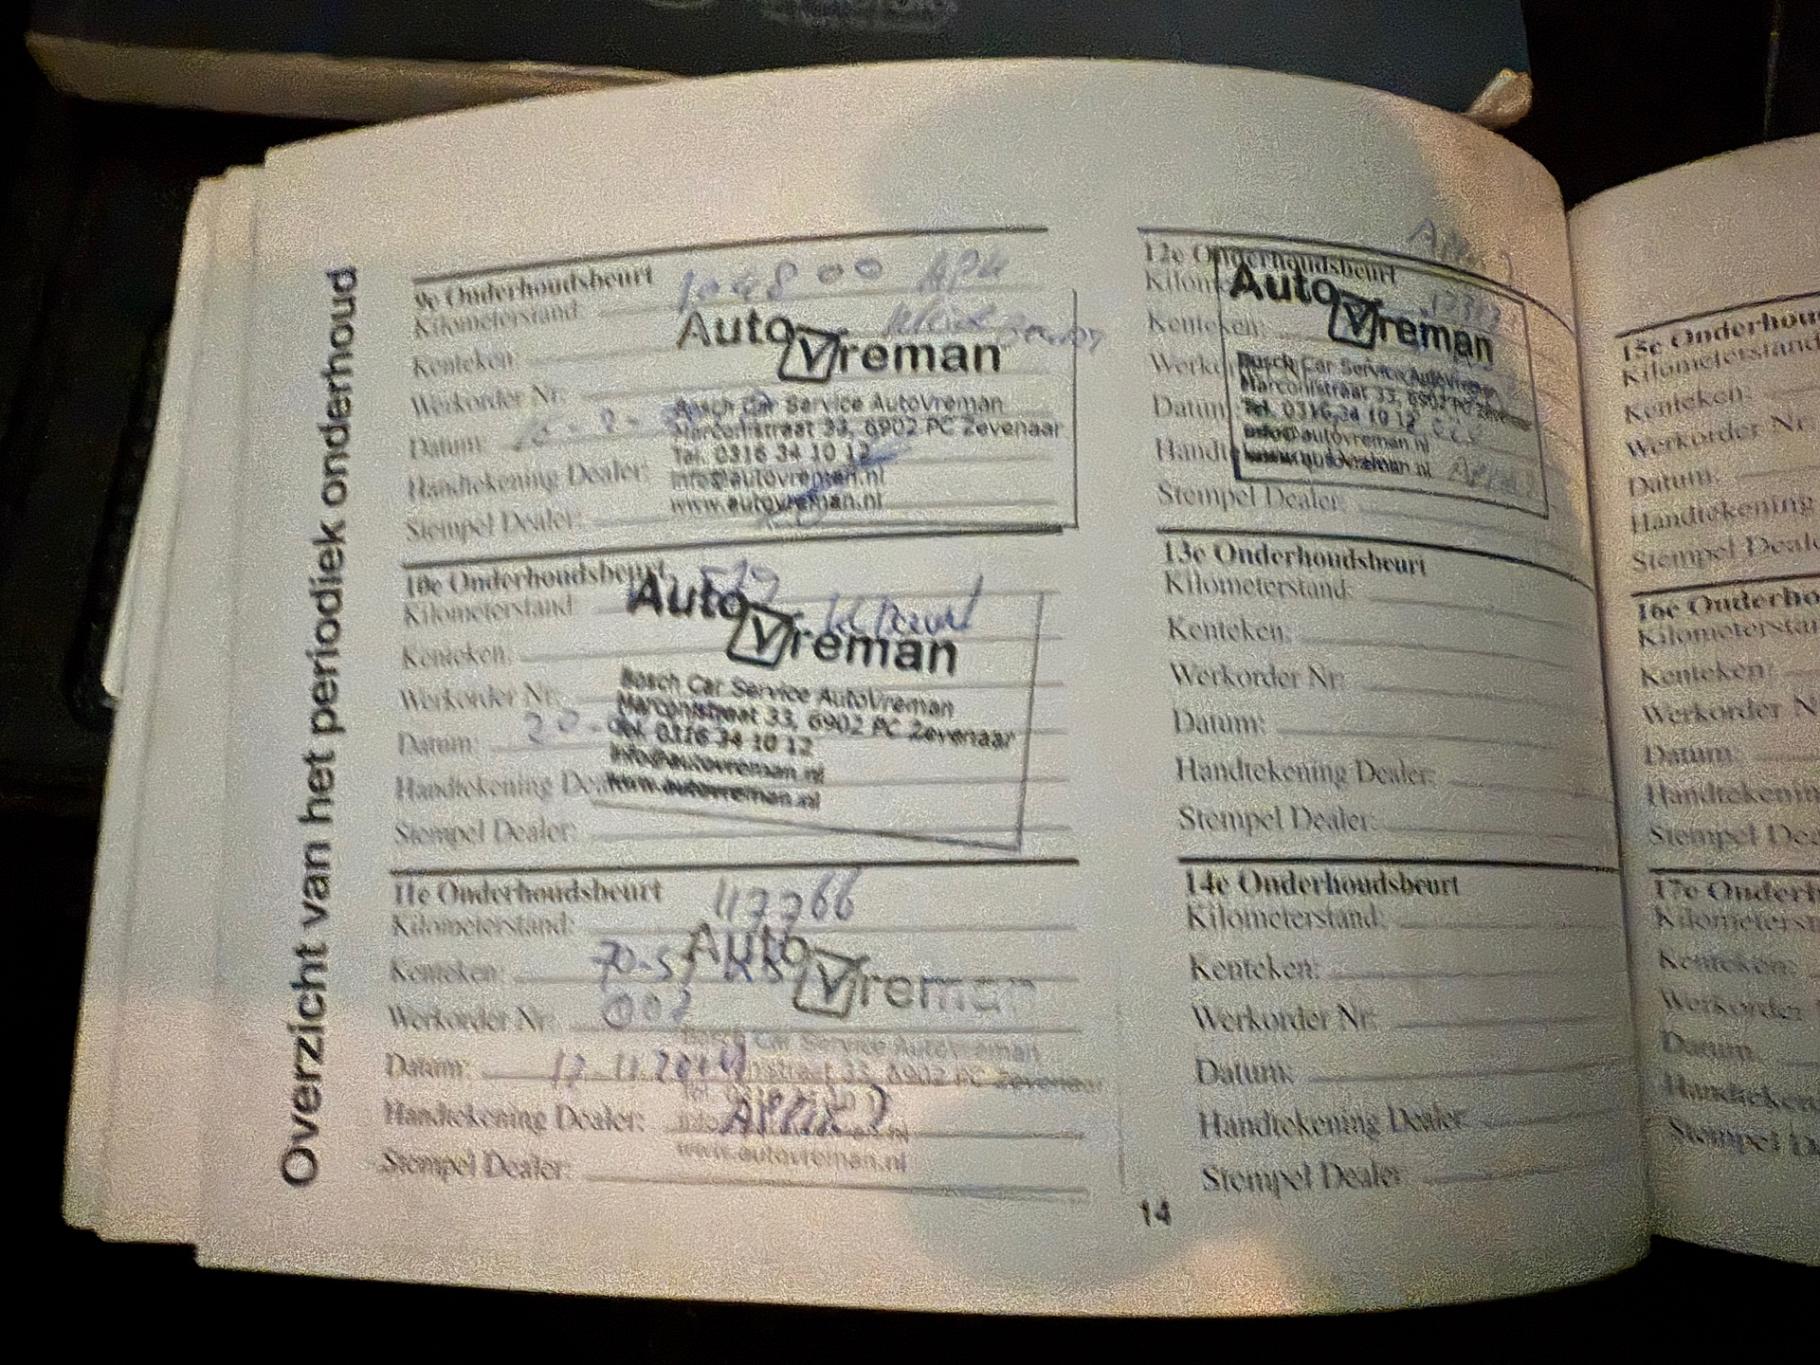 Overzicht van het periodiek onderhoud
9e Onderhoudsbeurt
Kilometerstand: 104800 APK
Kenteken:
Werkorder Nr:
Datum:
Handtekening Dealer:
Stempel Dealer:
Auto Vreman
Bosch Car Service AutoVreman
Marconistraat 33, 6902 PC Zevenaar
Tel. 0316 34 10 12
info@autovreman.nl
www.autovreman.nl
10e Onderhoudsbeurt
Kilometerstand:
Kenteken:
Werkorder Nr:
Datum:
Handtekening Dealer:
Stempel Dealer:
Auto Vreman
Bosch Car Service AutoVreman
Marconistraat 33, 6902 PC Zevenaar
Tel. 0316 34 10 12
info@autovreman.nl
www.autovreman.nl
11e Onderhoudsbeurt
Kilometerstand: 117766
Kenteken:
Werkorder Nr:
Datum:
Handtekening Dealer:
Stempel Dealer:
Auto Vreman
Bosch Car Service AutoVreman
33, 6902 PC Zevenaar
www.autovreman.nl
12e Onderhoudsbeurt
Kenteken:
Stempel Dealer:
Auto Vreman
Bosch Car Service AutoVreman
Marconistraat 33, 6902 PC Zevenaar
Tel. 0316 34 10 12
info@autovreman.nl
www.autovreman.nl
13e Onderhoudsbeurt
Kilometerstand:
Kenteken:
Werkorder Nr:
Datum:
Handtekening Dealer:
Stempel Dealer:
14e Onderhoudsbeurt
Kilometerstand:
Kenteken:
Werkorder Nr:
Datum:
Handtekening Dealer:
Stempel Dealer:
14
15e Onderhou
Kilometerstand
Kenteken:
Werkorder Nr:
Datum:
Handtekening
Stempel Deale
16e Onderho
Kilometersta
Kenteken:
Werkorder N
Datum:
Handtekenin
Stempel De
17e Onder
Kilometers
Kenteken:
Werkorder
Datum:
Handteke
Stempel D